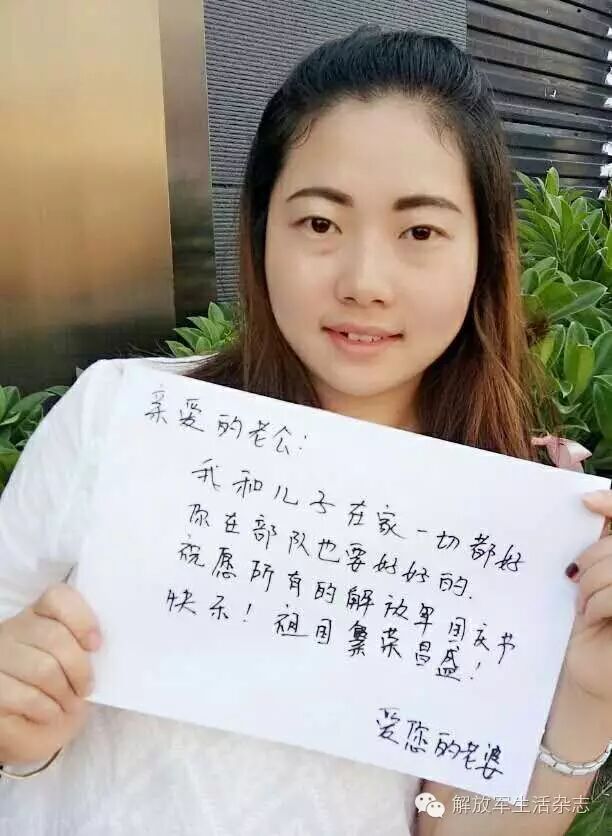 亲爱的老公:
我和儿子在家一切都好
你在部队也要好好的.
祝愿所有的解放军国庆节
快乐! 祖国繁荣昌盛!
爱您的老婆
解放军生活杂志